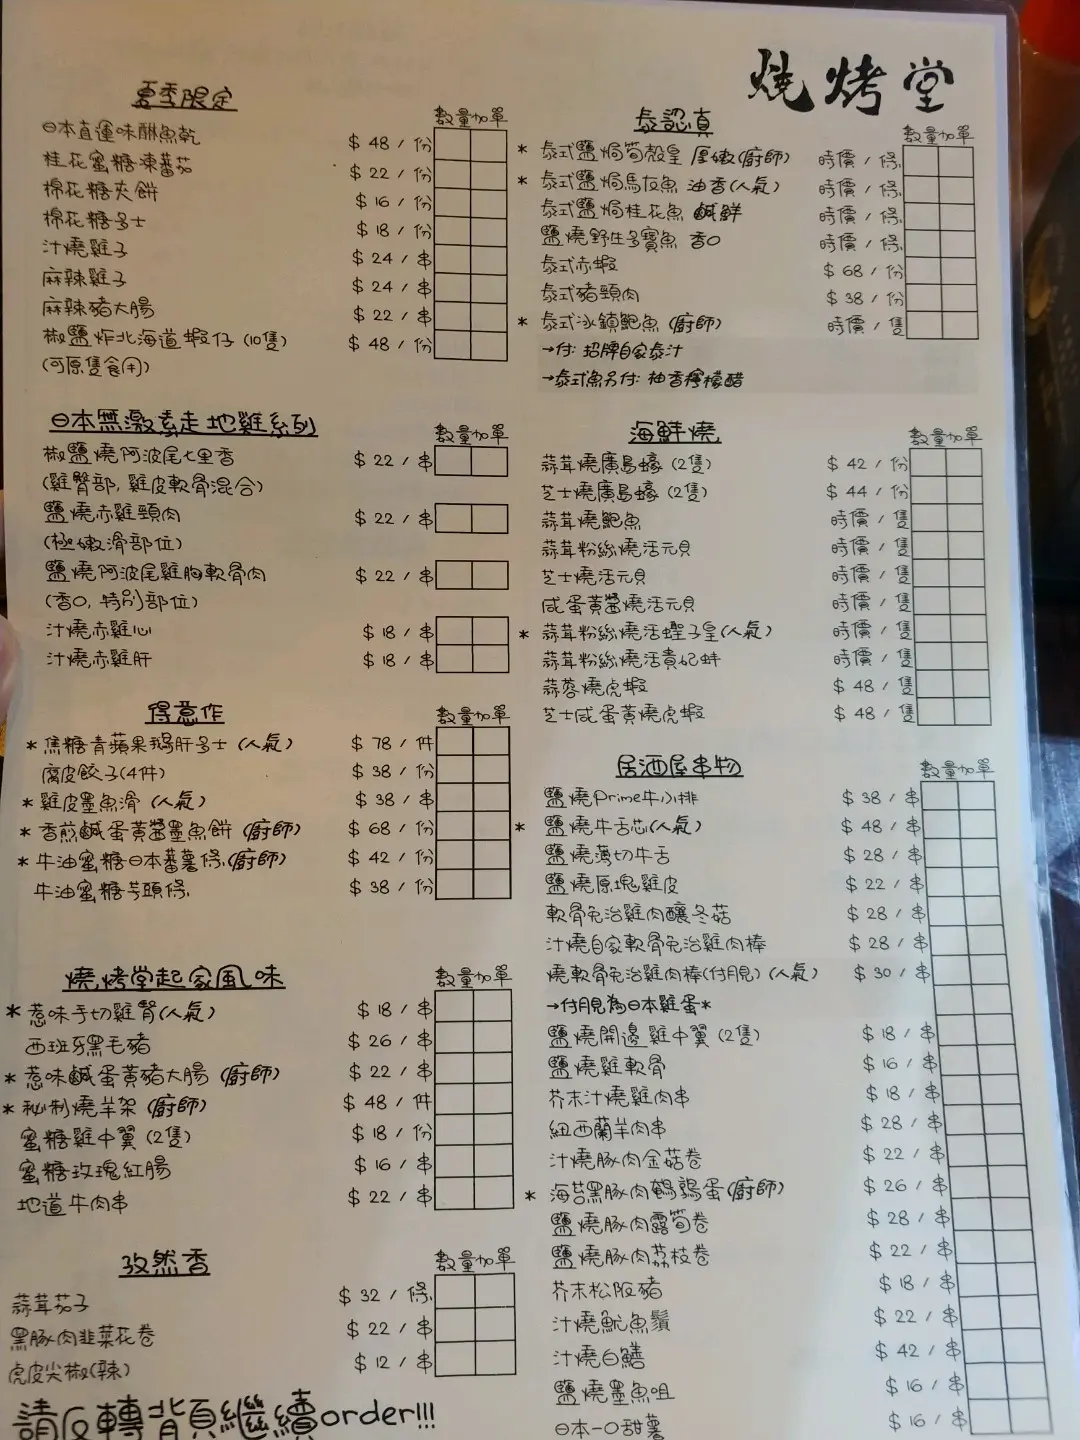 燒烤堂
夏季限定
數量 加單
日本直運味醂魚乾 $ 48 / 份
桂花蜜糖凍蕃茄 $ 22 / 份
棉花糖夾餅 $ 16 / 份
棉花糖多士 $ 18 / 份
汁燒雞子 $ 24 / 串
麻辣雞子 $ 24 / 串
麻辣豬大腸 $ 22 / 串
椒鹽炸北海道蝦仔 (10隻) $ 48 / 份
(可原隻食用)
日本無激素走地雞系列
數量 加單
椒鹽燒阿波尾七里香 $ 22 / 串
(雞臀部, 雞皮軟骨混合)
鹽燒赤雞頸肉 $ 22 / 串
(極嫩滑部位)
鹽燒阿波尾雞胸軟骨肉 $ 22 / 串
(香口, 特別部位)
汁燒赤雞心 $ 18 / 串
汁燒赤雞肝 $ 18 / 串
得意作
數量 加單
* 焦糖青蘋果鵝肝多士 (人氣) $ 78 / 件
腐皮餃子(4件) $ 38 / 份
* 雞皮墨魚滑 (人氣) $ 38 / 串
* 香煎鹹蛋黃醬墨魚餅 (廚師) $ 68 / 份
* 牛油蜜糖日本蕃薯條 (廚師) $ 42 / 份
牛油蜜糖芋頭條 $ 38 / 份
燒烤堂起家風味
數量 加單
* 惹味手切雞腎(人氣) $ 18 / 串
西班牙黑毛豬 $ 26 / 串
* 惹味鹹蛋黃豬大腸 (廚師) $ 22 / 串
* 秘制燒羊架 (廚師) $ 48 / 件
蜜糖雞中翼 (2隻) $ 18 / 份
蜜糖玫瑰紅腸 $ 16 / 串
地道牛肉串 $ 22 / 串
孜然香
數量 加單
蒜茸茄子 $ 32 / 條
黑豚肉韭菜花卷 $ 22 / 串
虎皮尖椒(辣) $ 12 / 串
請反轉背頁繼續order!!!
泰認真
數量 加單
* 泰式鹽焗筍殼皇 厚嫩(廚師) 時價 / 條
* 泰式鹽焗馬友魚 油香(人氣) 時價 / 條
泰式鹽焗桂花魚 鹹鮮 時價 / 條
鹽燒野生多寶魚 香口 時價 / 條
泰式赤蝦 $ 68 / 份
泰式豬頸肉 $ 38 / 份
* 泰式冰鎮鮑魚 (廚師) 時價 / 隻
→付: 招牌自家泰汁
→泰式魚另付: 柚香檸檬醋
海鮮燒
數量 加單
蒜茸燒廣島蠔 (2隻) $ 42 / 份
芝士燒廣島蠔 (2隻) $ 44 / 份
蒜茸燒鮑魚 時價 / 隻
蒜茸粉絲燒活元貝 時價 / 隻
芝士燒活元貝 時價 / 隻
咸蛋黃醬燒活元貝 時價 / 隻
* 蒜茸粉絲燒活蟶子皇(人氣) 時價 / 隻
蒜茸粉絲燒活貴妃蚌 時價 / 隻
蒜蓉燒虎蝦 $ 48 / 隻
芝士咸蛋黃燒虎蝦 $ 48 / 隻
居酒屋串物
數量 加單
鹽燒Prime牛小排 $ 38 / 串
* 鹽燒牛舌芯(人氣) $ 48 / 串
鹽燒薄切牛舌 $ 28 / 串
鹽燒原塊雞皮 $ 22 / 串
軟骨免治雞肉釀冬菇 $ 28 / 串
汁燒自家軟骨免治雞肉棒 $ 28 / 串
燒軟骨免治雞肉棒(付月見) (人氣) $ 30 / 串
→付月見為日本雞蛋*
鹽燒開邊雞中翼 (2隻) $ 18 / 串
鹽燒雞軟骨 $ 16 / 串
芥末汁燒雞肉串 $ 18 / 串
紐西蘭羊肉串 $ 28 / 串
汁燒豚肉金菇卷 $ 22 / 串
* 海苔黑豚肉鵪鶉蛋(廚師) $ 26 / 串
鹽燒豚肉露筍卷 $ 28 / 串
鹽燒豚肉荔枝卷 $ 22 / 串
芥末松阪豬 $ 18 / 串
汁燒魷魚鬚 $ 22 / 串
汁燒白鱔 $ 42 / 串
鹽燒墨魚咀 $ 16 / 串
日本一口甜薯 $ 16 / 串